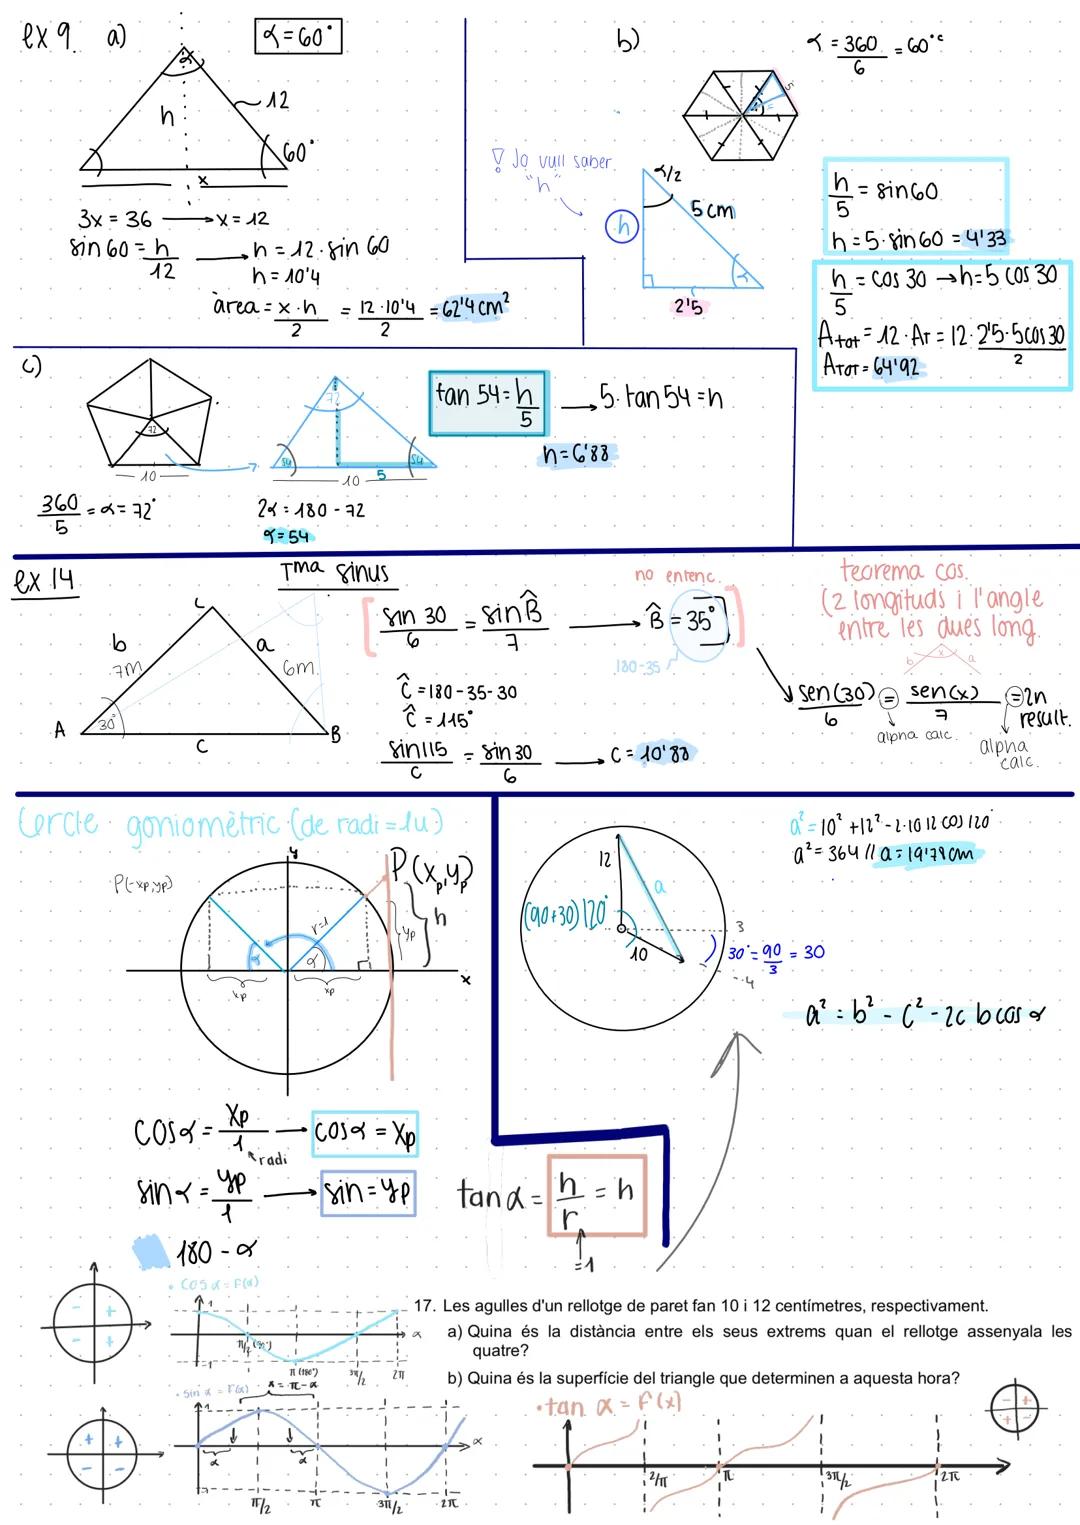 ex 9. a)
α = 60°
α
h
12
60°
x
3x = 36 → x = 12
sin 60 = h/12 → h = 12 · sin 60
h = 10'4
àrea = x·h/2 = 12·10'4/2 = 62'4 cm²
b)
α = 360/6 = 60°
5
Jo vull saber
"h"
α/2
h
5 cm
α
2'5
h/5 = sin 60
h = 5 · sin 60 = 4'33
h/5 = cos 30 → h = 5 cos 30
Atot = 12 · Ar = 12 · 2'5·5 cos 30/2
ATOT = 64'92
c)
72
10
360/5 = α = 72°
72
54
54
10
5
2α = 180 - 72
α = 54
tan 54 = h/5 → 5 · tan 54 = h
h = 6'88
ex 14
Tma sinus
C
b
7m
a
6m.
A
30°
c
B
sin 30/6 = sin B̂/7 → B̂ = 35°
no entenc.
180-35
Ĉ = 180 - 35 - 30
Ĉ = 115°
sin 115/c = sin 30/6 → c = 10'88
teorema cos.
(2 longituds i l'angle
entre les dues long.
b x a
sen(30)/6 = sen(x)/7 = 2n
result.
alpha calc.
alpha
calc.
Cercle goniomètric (de radi = 1u)
y
P(-xp,yp)
P(xp,yp)
r=1
α
α
yp
h
xp
xp
x
cos α = xp/1 → cos α = xp
radi
sin α = yp/1 → sin = yp
tan α = h/r = h
=1
180 - α
12
a
(90+30) 120°
10
3
4
30° = 90/3 = 30
a² = 10² + 12² - 2·10 12 cos 120°
a² = 364 // a = 19'79 cm
a² = b² - c² - 2c b cos α
- +
- +
• cos α = F(α)
1
-1
π/2 (90°)
π (180°)
3π/2
2π
α
+ +
- -
• sin α = F(α)
x = π - α
1
α
α
π/2
π
3π/2
2π
α
17. Les agulles d'un rellotge de paret fan 10 i 12 centímetres, respectivament.
a) Quina és la distància entre els seus extrems quan el rellotge assenyala les
quatre?
b) Quina és la superfície del triangle que determinen a aquesta hora?
• tan α = F(x)
2/π
π
3π/2
2π
- +
+ -